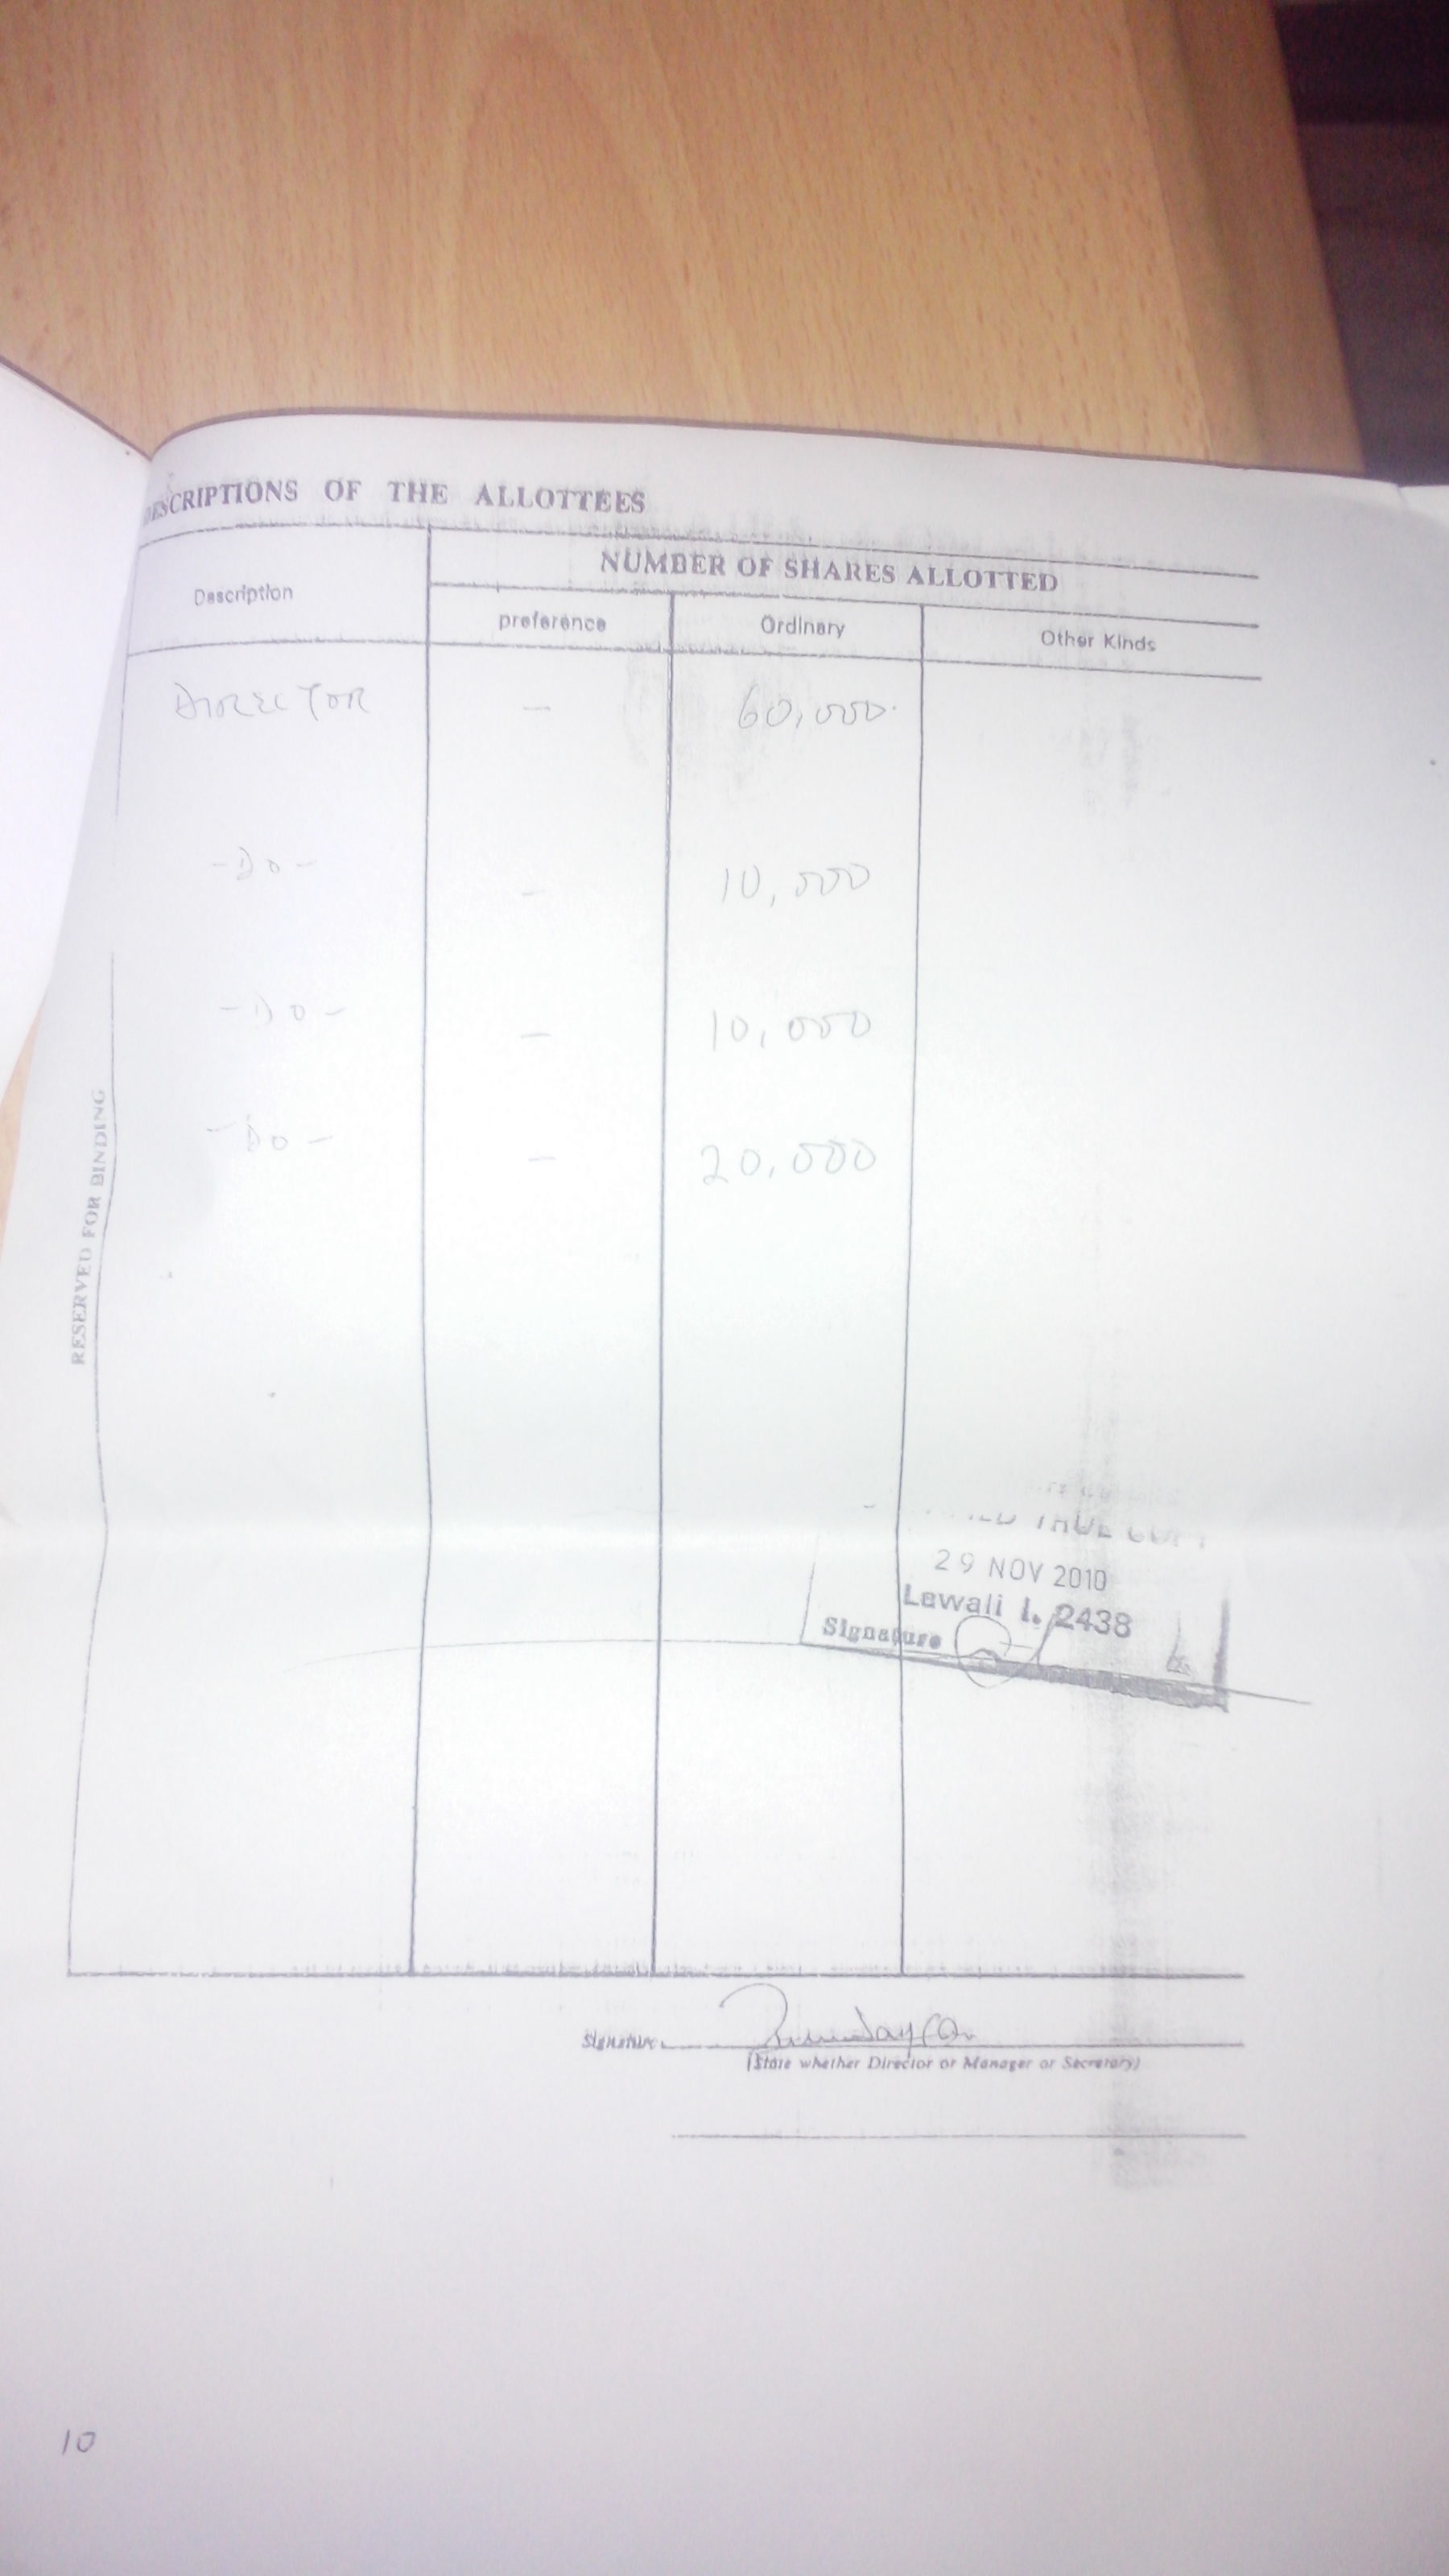 DESCRIPTIONS OF THE ALLOTTEES
NUMBER OF SHARES ALLOTTED
Description
preference
Ordinary
Other Kinds
DIRECTOR - 60,000
-DO- - 10,000
-DO- - 10,000
-DO- - 20,000
RESERVED FOR BINDING
TRUE COPY
29 NOV 2010
Lawali I. 2438
Signature
Signature
(State whether Director or Manager or Secretary)
10